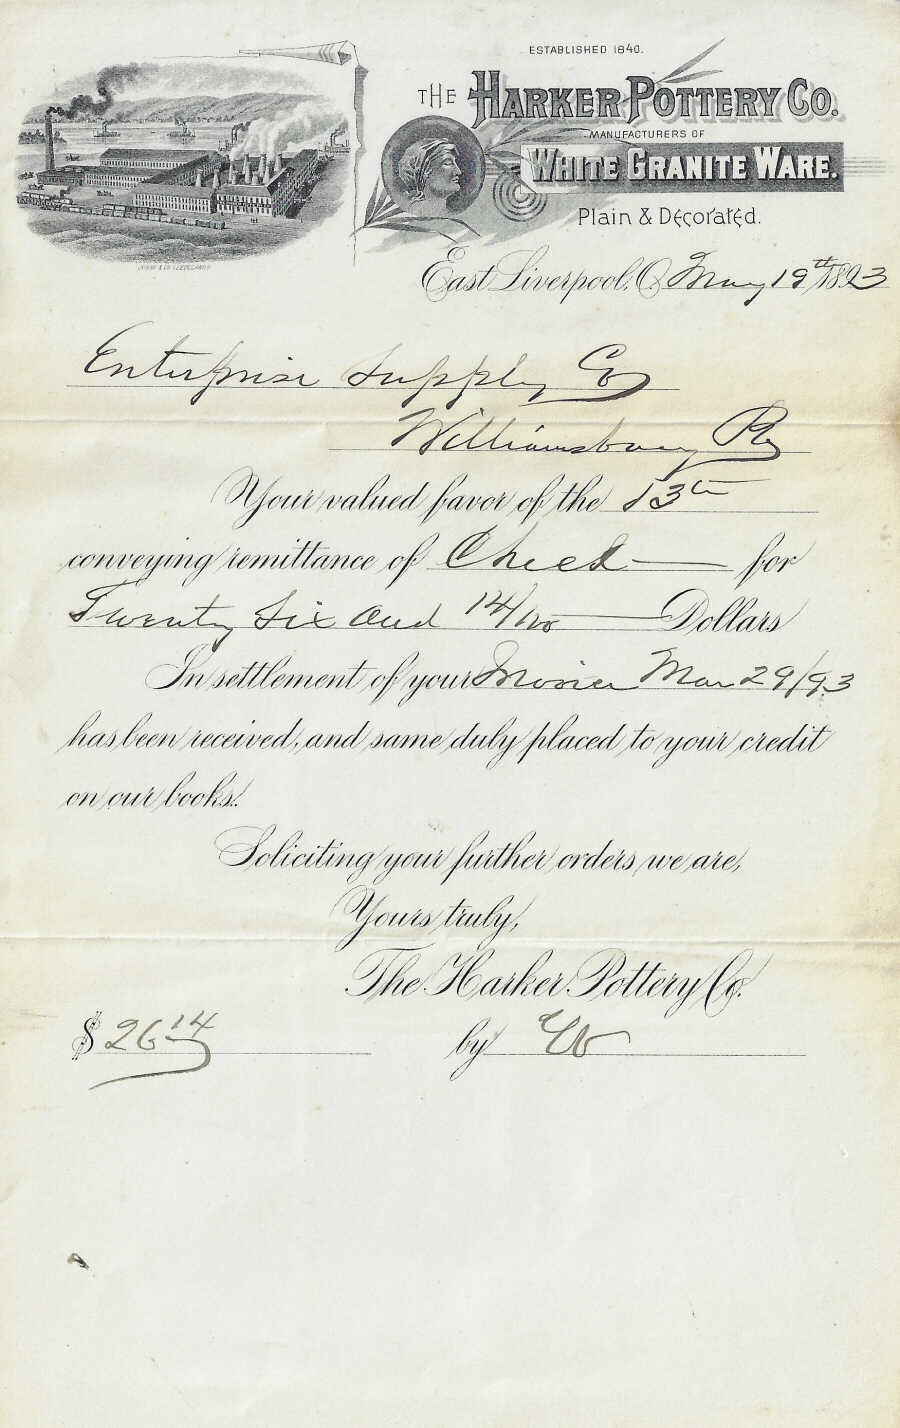 ESTABLISHED 1840.
THE HARKER POTTERY CO.
MANUFACTURERS OF
WHITE GRANITE WARE.
Plain & Decorated.
East Liverpool, O. May 19th 1893
Enterprise Supply Co
Williamsburg Ky
Your valued favor of the 13th
conveying remittance of Check for
Twenty Six and 14/100 Dollars
In settlement of your Mar 29/93
has been received, and same duly placed to your credit
on our books.
Soliciting your further orders we are,
Yours truly,
The Harker Pottery Co.
$ 26 14 by